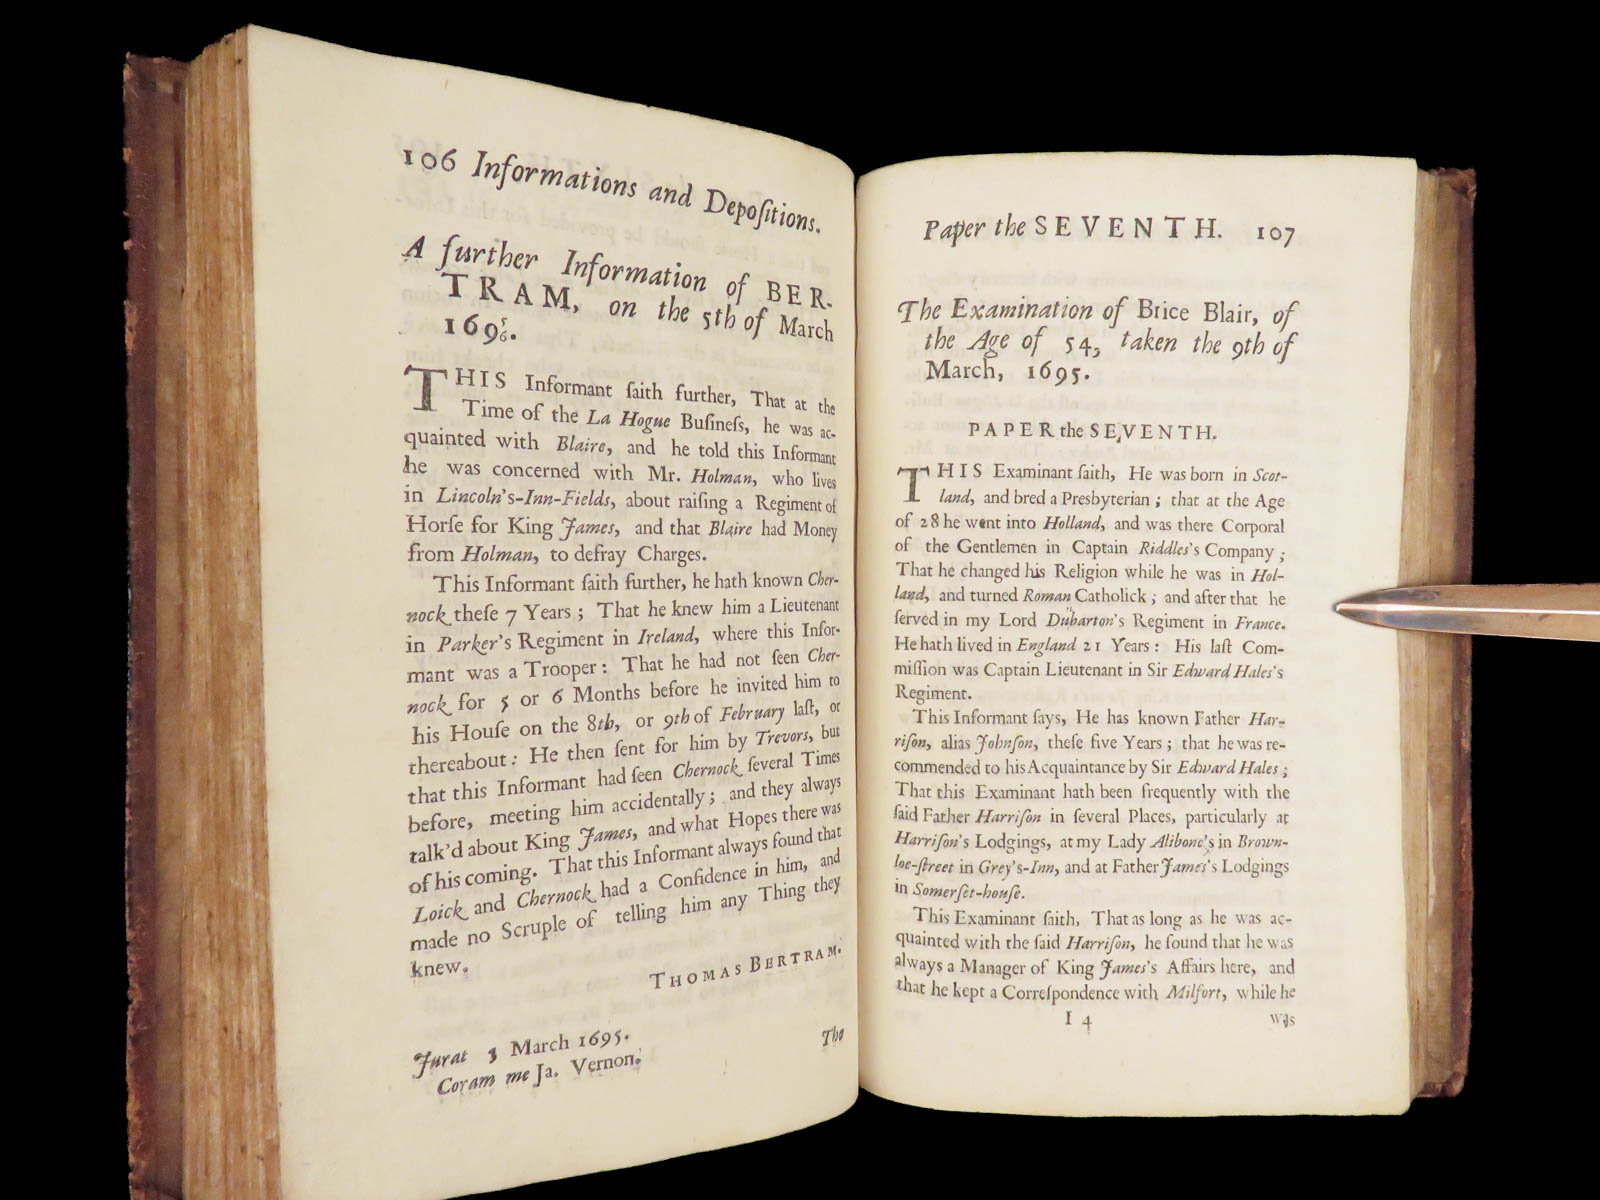 106 Informations and Depoſitions.
A further Information of BER-
TRAM, on the 5th of March
169⅚.
THIS Informant ſaith further, That at the
Time of the La Hogue Buſineſs, he was ac-
quainted with Blaire, and he told this Informant
he was concerned with Mr. Holman, who lives
in Lincoln's-Inn-Fields, about raiſing a Regiment of
Horſe for King James, and that Blaire had Money
from Holman, to defray Charges.
This Informant ſaith further, he hath known Cher-
nock theſe 7 Years; That he knew him a Lieutenant
in Parker's Regiment in Ireland, where this Infor-
mant was a Trooper: That he had not ſeen Cher-
nock for 5 or 6 Months before he invited him to
his Houſe on the 8th, or 9th of February laſt, or
thereabout: He then ſent for him by Trevors, but
that this Informant had ſeen Chernock ſeveral Times
before, meeting him accidentally; and they always
talk'd about King James, and what Hopes there was
of his coming. That this Informant always found that
Loick and Chernock had a Confidence in him, and
made no Scruple of telling him any Thing they
knew.
THOMAS BERTRAM.
Jurat 3 March 1695.
Coram me Ja. Vernon.
The
Paper the SEVENTH. 107
The Examination of Brice Blair, of
the Age of 54, taken the 9th of
March, 1695.
PAPER the SEVENTH.
THIS Examinant ſaith, He was born in Scot-
land, and bred a Presbyterian; that at the Age
of 28 he went into Holland, and was there Corporal
of the Gentlemen in Captain Riddles's Company;
That he changed his Religion while he was in Hol-
land, and turned Roman Catholick; and after that he
ſerved in my Lord Dubarton's Regiment in France.
He hath lived in England 21 Years: His laſt Com-
miſſion was Captain Lieutenant in Sir Edward Hales's
Regiment.
This Informant ſays, He has known Father Har-
riſon, alias Johnſon, theſe five Years; that he was re-
commended to his Acquaintance by Sir Edward Hales;
That this Examinant hath been frequently with the
ſaid Father Harriſon in ſeveral Places, particularly at
Harriſon's Lodgings, at my Lady Alibone's in Brown-
loe-ſtreet in Grey's-Inn, and at Father James's Lodgings
in Somerſet-houſe.
This Examinant ſaith, That as long as he was ac-
quainted with the ſaid Harriſon, he found that he was
always a Manager of King James's Affairs here, and
that he kept a Correſpondence with Milfort, while he
I 4 was